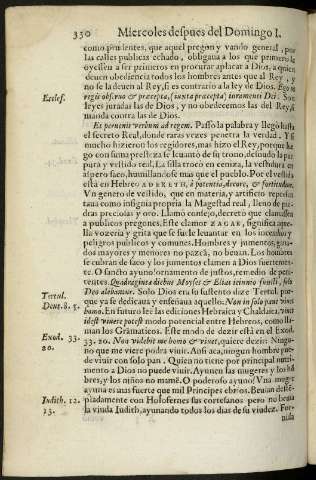 330 Miercoles despues del Domingo I.
como prudentes, que aquel pregon y vando general, por
las calles publicas echado, obligaua a los que primero lo
oyessen a ser primeros en procurar aplacar a Dios, a quien
deuen obediencia todos los hombres antes que al Rey, y
no se la deuen al Rey, si es contrario a la ley de Dios. Ego os
Eccles. regis obseruo & præcepta, iuramenti Dei. Son
leyes juradas las de Dios, y no obedecemos las del Rey, si
manda contra las de Dios.
Et peruenit verbum ad regem. Passò la palabra y llegò hasta
el secreto Real, donde raras vezes penetra la verdad. Y si
mucho hizieron los regidores, mas hizo el Rey, porque luego
con suma presteza se leuantò de su trono, dexando la purpura
y vestido real, La silla trocò en ceniza, la vestidura en
aspero saco, humillandose mas que el pueblo. Por el vestido
està en Hebreo ADERETH, à potentia, decore, & fortitudine.
Vn genero de vestido, que en materia, y artificio representaua
como insignia propria la Magestad real, lleno de piedras
preciosas y oro. Llamò consejo, decreto que clamassen
a publicos pregones. Este clamor ZAGAR, significa aquella
vozeria y grita que se suele leuantar en los
peligros publicos y comunes. Hombres y jumentos, ganados
mayores y menores no pazcã, no beuan. Los hombres
se cubran de saco y los jumentos clamen a Dios fuertemente.
O sancto ayuno! ornamento de justos, remedio de penitentes.
Quadraginta diebus Moyses & Elias ieiunio functi, solo
Deo alebantur. Solo Dios era su sustento dize Tertul. porque
Tertul. ya se dedicaua y enseñaua aquello. Non in solo pane viuit
Deut. 8. 3. homo. En futuro lee las ediciones Hebraica y Chaldaica, viuit
idest viuere potest modo potencial entre Hebreos, como llaman
los Gramaticos. Este modo de dezir està en el Exod.
Exod. 33. 33. 20. Non videbit me homo & viuet, quiere dezir: Ninguno
20. que me viere podra viuir. Assi aca, ningun hombre puede
viuir con solo pan. Quien no tiene por principal nutrimento
a Dios no puede viuir. Ayunen las mugeres y los hõbres,
y los niños no mamẽ. O poderoso ayuno! Vna muger
ayuna es mas fuerte que mil Principes ebrios. Beuian destempladamente
Judith. 12. con Holofernes sus cortesanos pero no beuia
13. la viuda Iudith, ayunando todos los dias de su viudez.